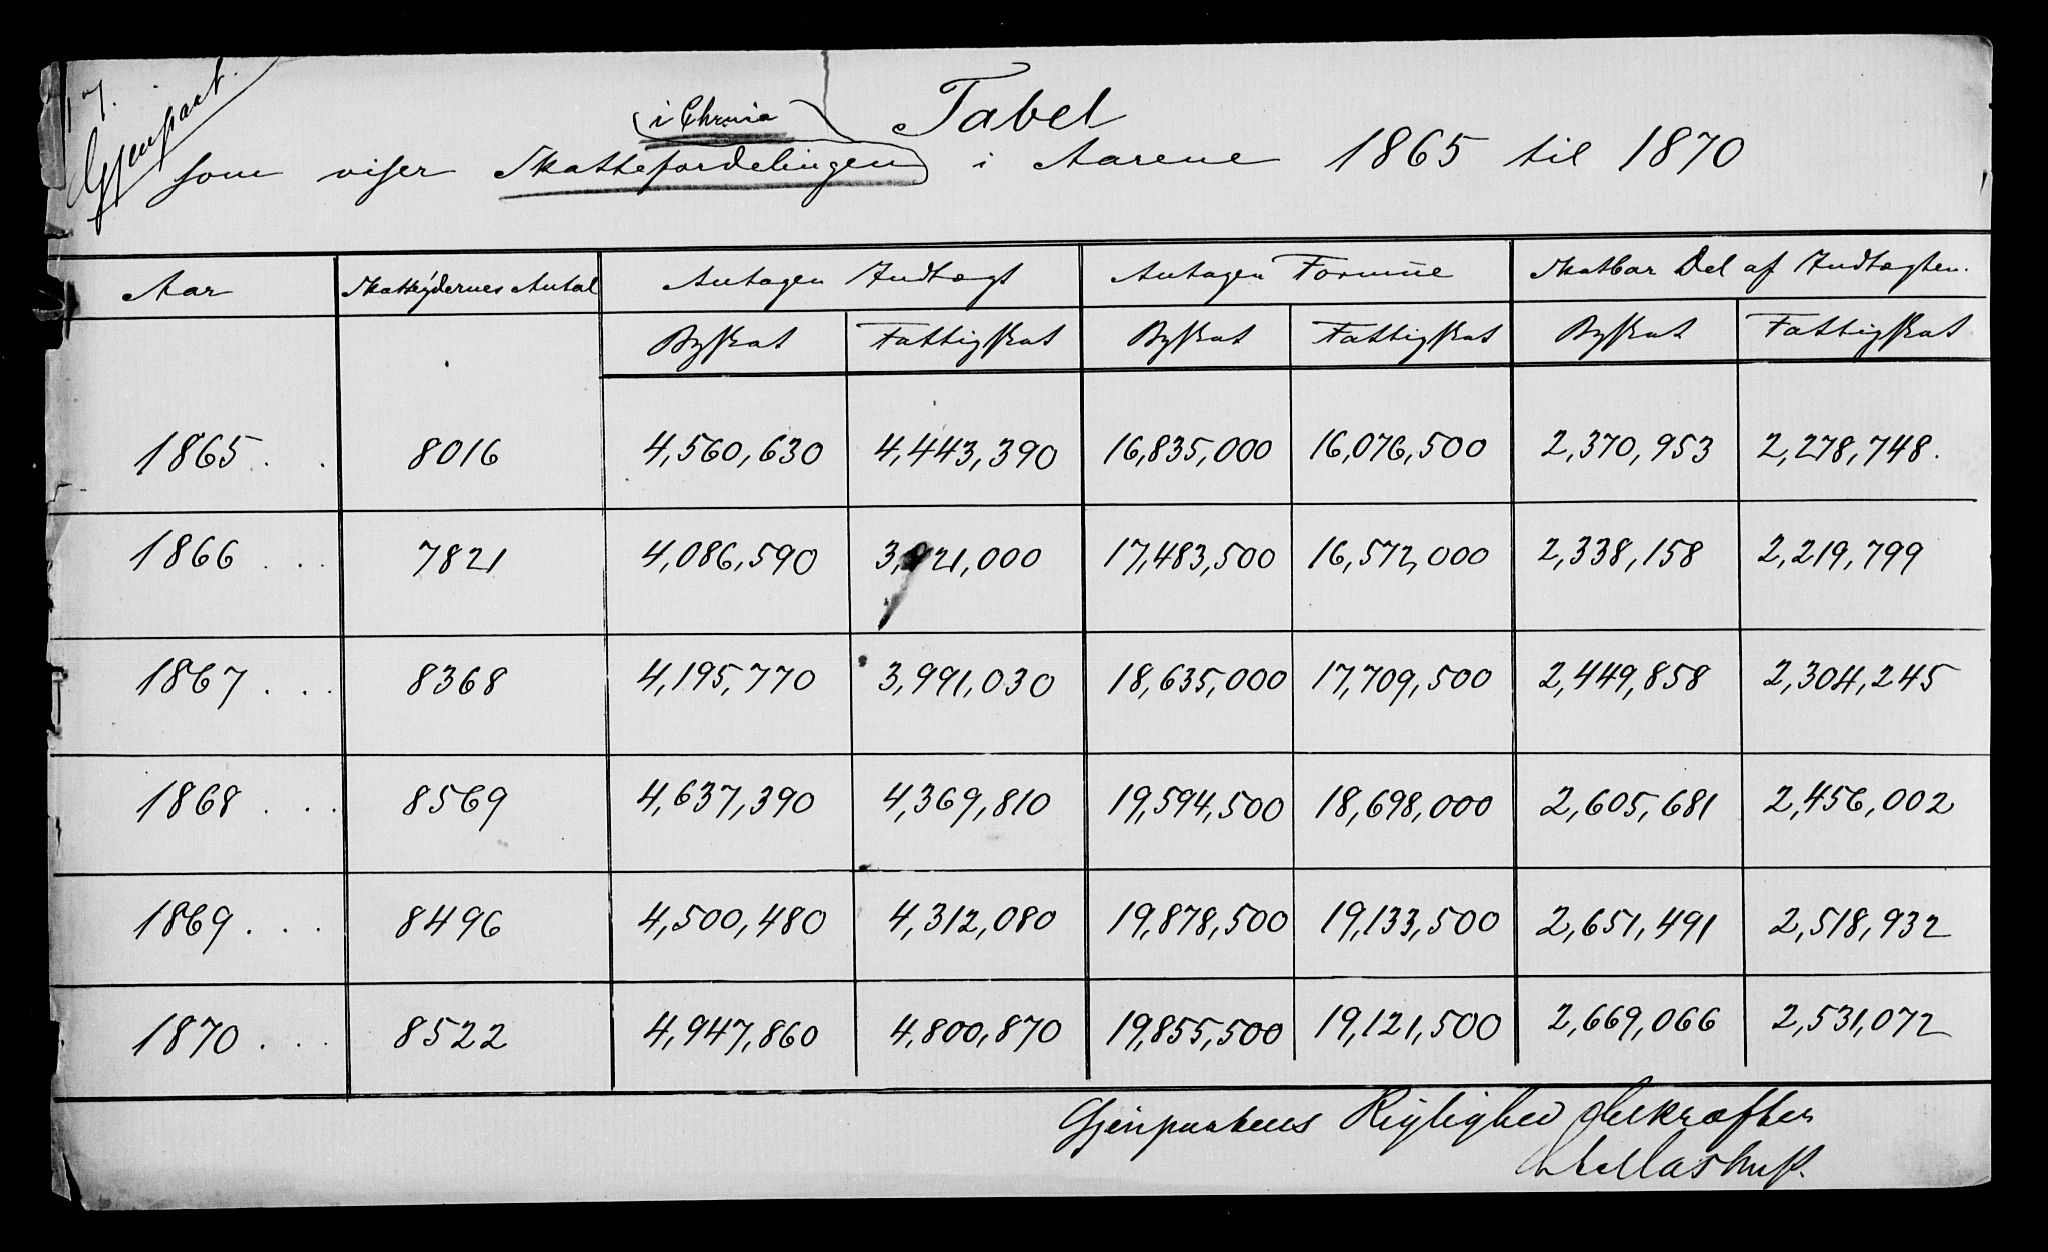 17.
Gjenpart.
Tabel
i Chrania
som viser Skattefordelingen i Aarene 1865 til 1870
Aar Skatteydernes Antal Antagen Indtægt Antagen Formue Skatbar Del af Indtægten.
Byskat Fattigskat Byskat Fattigskat Byskat Fattigskat
1865 . . 8016 4,560,630 4,443,390 16,835,000 16,076,500 2,370,953 2,278,748.
1866 . . . 7821 4,086,590 3,921,000 17,483,500 16,572,000 2,338,158 2,219,799
1867 . . . 8368 4,195,770 3,991,030 18,635,000 17,709,500 2,449,858 2,304,245
1868 . . . 8569 4,637,390 4,369,810 19,594,500 18,698,000 2,605,681 2,456,002
1869 . . . 8496 4,500,480 4,312,080 19,878,500 19,133,500 2,651,491 2,518,932
1870 . . . 8522 4,947,860 4,800,870 19,855,500 19,121,500 2,669,066 2,531,072
Gjenpartens Rigtighed bekræfter